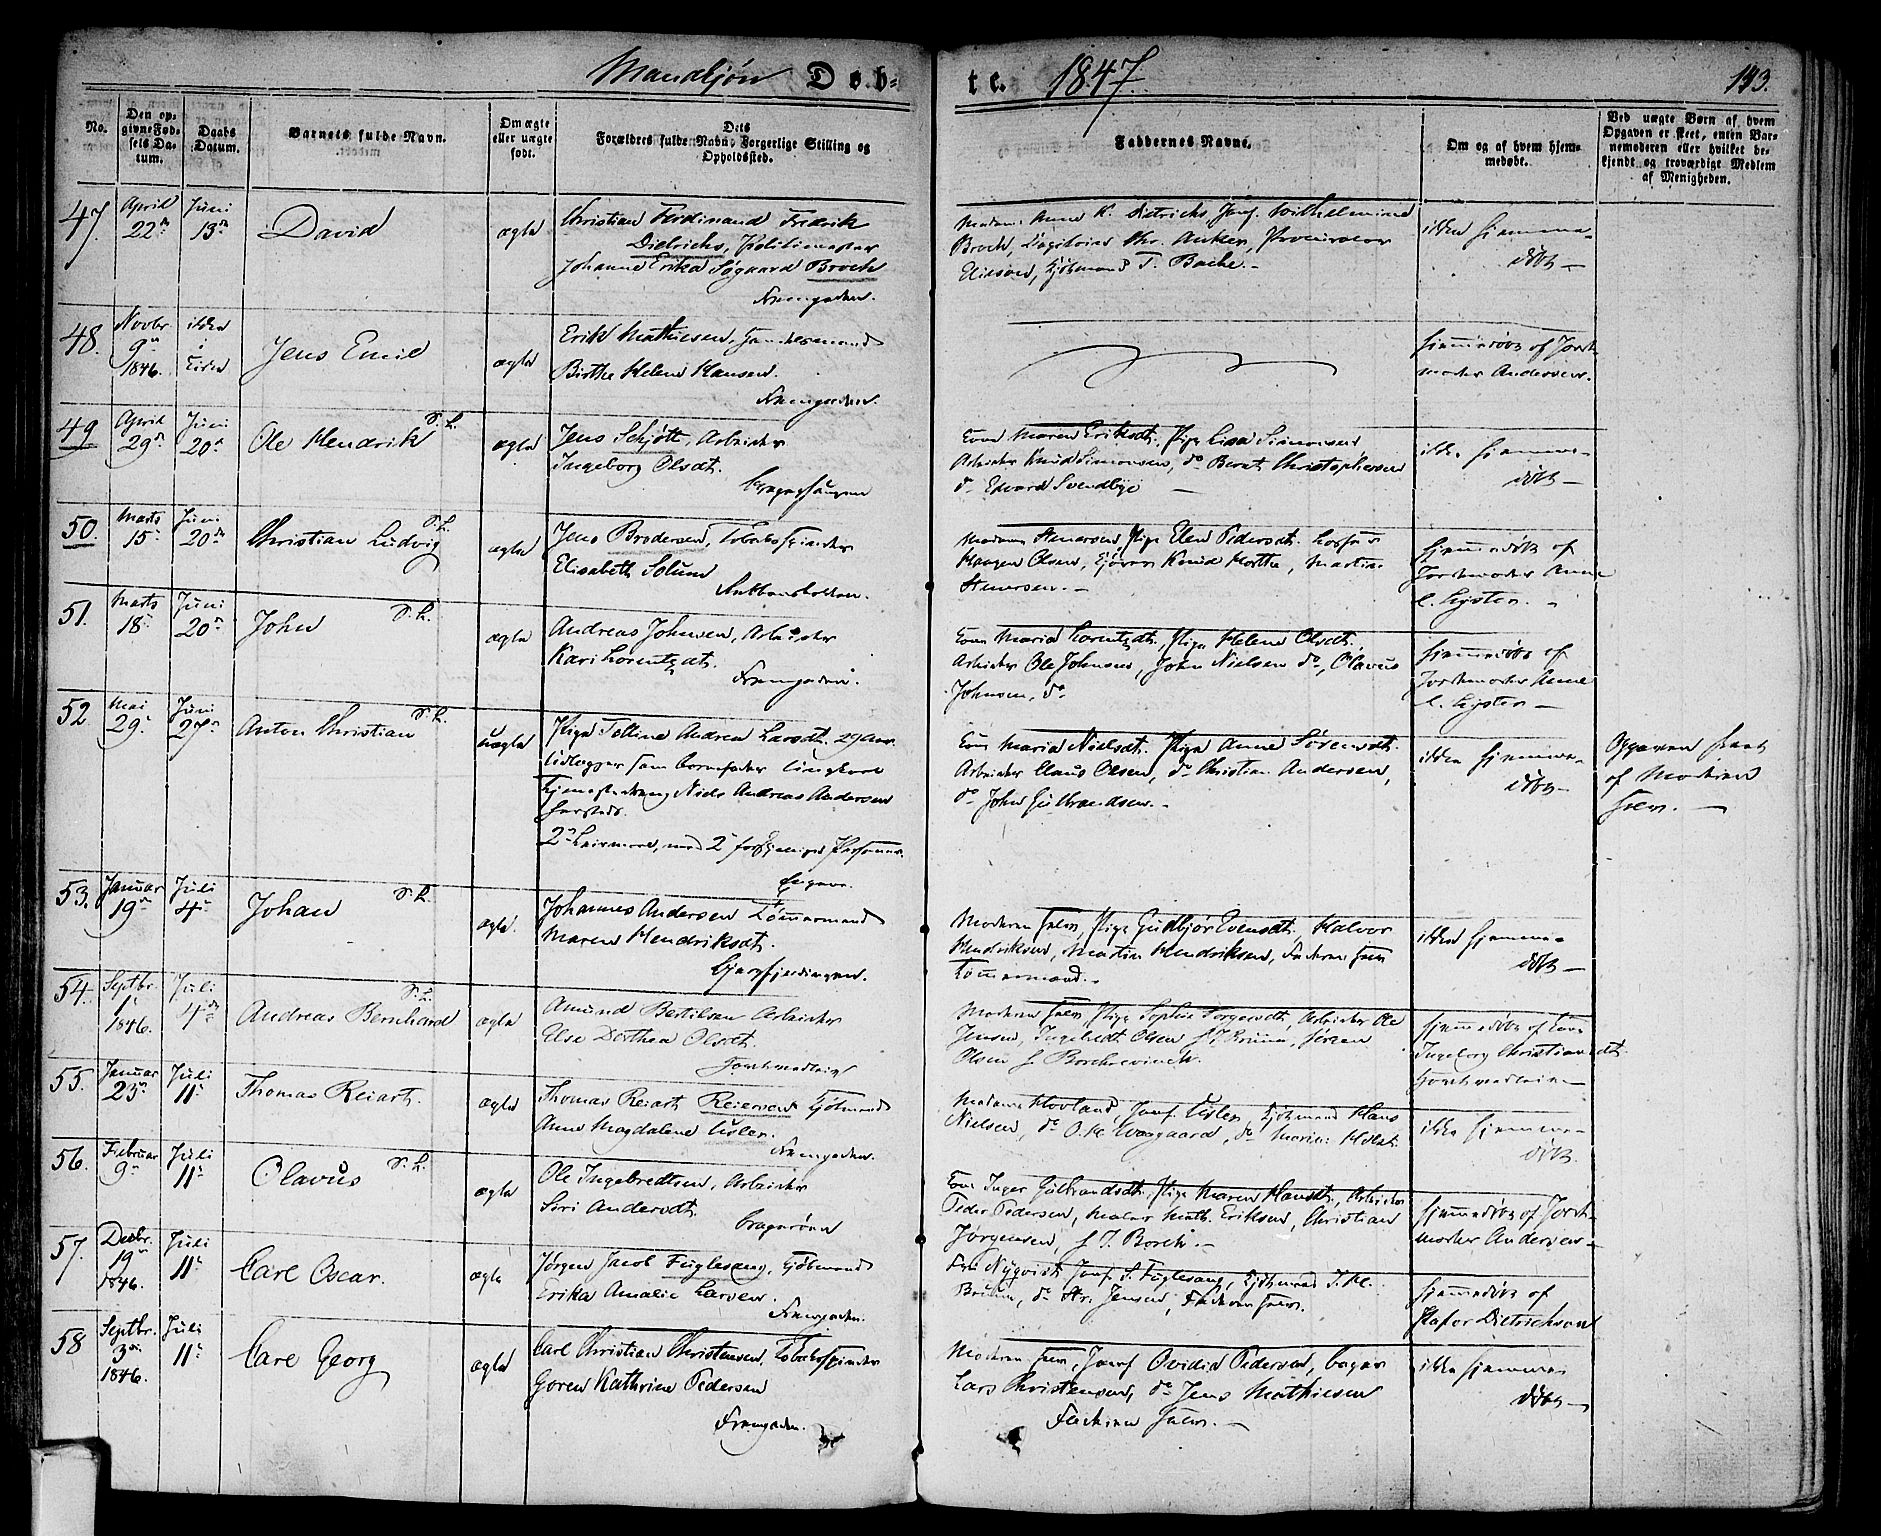 Mandkjøn Døb-
te. 1847. 143.
No.
Den opgivne Fødsels Datum.
Daabs Datum.
Barnets fulde Navn.
Om ægte eller uægte født.
Dets Forældres fulde Navn, Borgerlige Stilling og Opholdssted.
Faddernes Navne.
Om og af hvem hjemmedøbt.
Ved uægte Børn af hvem Opgaven er skeet, enten Barnemoderen eller hvilket bekjendt og troværdigt Medlem af Menigheden.
47. April 22 Juni 13 David ægte
Christian Ferdinand Fredrik
Dietrichs, Politimester
Johanne Erika Søgaard Broch
Madame Anne K. Dietrichs Jomf. Wilhelmine
Broch, Chr. Anker, Procurator
Eliesen, Kjøbmand T. Bache.
ikke hjemme-
døbt
48. Novbr. 9 1846. ikke i Kirken Jens Emil ægte
Erik Mathiesen,
Birthe Helene Hansen.
hjemmedøbt af Jord-
moder Andersen.
49 April 29 Juni 20 Ole Hendrik ægte
Jens Schjøtt, Arbeider
Ingeborg Olsdt.
Kone Maren Eriksdt. Pige Lisa Simonsen
Arbeider Knud Simonsen, do Bernt Christophersen
do Edvard Svendbye
ikke hjemme-
døbt
50. Marts 15 Juni 20 Christian Ludvig ægte
Jens Brodersen, Tobaksspinder
Elisabeth Solum
Madame Stenersen Pige Elen Pedersdt.
Haagen Olsen, Knud Horthe, Martin
Stenersen.
hjemmedøbt af
Jordmoder Anne
C. Lysten.
51. Marts 18 Juni 20 John ægte
Andreas Johnsen, Arbeider
Kari Lorentzdt.
Kone Maria Lorentzdt. Pige Helene Olsdt.
Arbeider Ole Johnsen, John Nielsen do, Olavus
Johnsen, do
hjemmedøbt af
Jordmoder Anne
C. Lysten
52 Mai 29 Juni 27 Anton Christian uægte
Pige Tolline Andrea Larsdt. 29 Aar.
udlægger som Barnefader Ungkarl
Niels Andreas Andersen
2 Leiermaal, med 2 forskjellige Personer.
Kone Maria Nielsdt. Pige Anne Sørensdt.
Arbeider Claus Olsen, do Christian Andersen,
do John Gulbrandsen.
ikke hjemme-
døbt
Opgaven skeet
af Moderen
selv.
53. Januar 19 Juli 4 Johan ægte.
Johannes Andersen Tømmermand
Maren Hendriksdt.
Moderen selv, Pige Gudbjør Evensdt. Halvor
Hendriksen, Martin Hendriksen, Faderen selv
Tømmermand.
ikke hjemme-
døbt
54. Septbr. 1 1846. Juli 4 Andreas Bernhard ægte
Amund Bertilsen Arbeider
Else Dorthea Olsdt.
Moderen selv Pige Sophie Torgersdt. Arbeider Ole
Jensen, Ingebredt Olsen f. J. Kruun, Jørgen
Olsen f. Borchrevinck.
hjemmedøbt af Kone
Ingeborg Christiansdt.
55. Januar 23 Juli 11 Thomas Reiart. ægte
Thomas Reiart Reiersen Kjøbmand
Anne Magdalene Usler.
Madame Hovland Jomf. Usler, Kjøbmand Hans
Nielsen, do O. H. Waagaard, do Morin: Holst.
ikke hjemme-
døbt.
56. Februar 9 Juli 11 Olavus ægte
Ole Ingebredtsen, Arbeider
Siri Andersdt. Bragerøen
Kone Inger Gulbrandsdt. Pige Maren Hansdt. Arbeider
Peder Pedersen, Maler Math. Eriksen, Christian
Jørgensen, f. J. Borch.
hjemmedøbt af Jord-
moder Andersen
57. Decbr. 19 1846. Juli 11 Carl Oscar. ægte
Jørgen Jacob Fuglesang, Kjøbmand
Erika Amalie Larsen.
Fru Nyqvist Jomf. S. Fuglesang, Kjøbmand J. H.
Bruun, do Hr. Jensen, Faderen selv.
hjemmedøbt af
Pastor Dietrichson
58 Septbr. 3 1846. Juli 11 Carl Georg ægte
Carl Christian Christensen, Tobaksspinder
Goren Kathrine Pedersen
Moderen selv, Jomf. Ovidia Pedersen, Bager
Lars Christensen, do Jens Mathiesen
Faderen selv.
ikke hjemme-
døbt